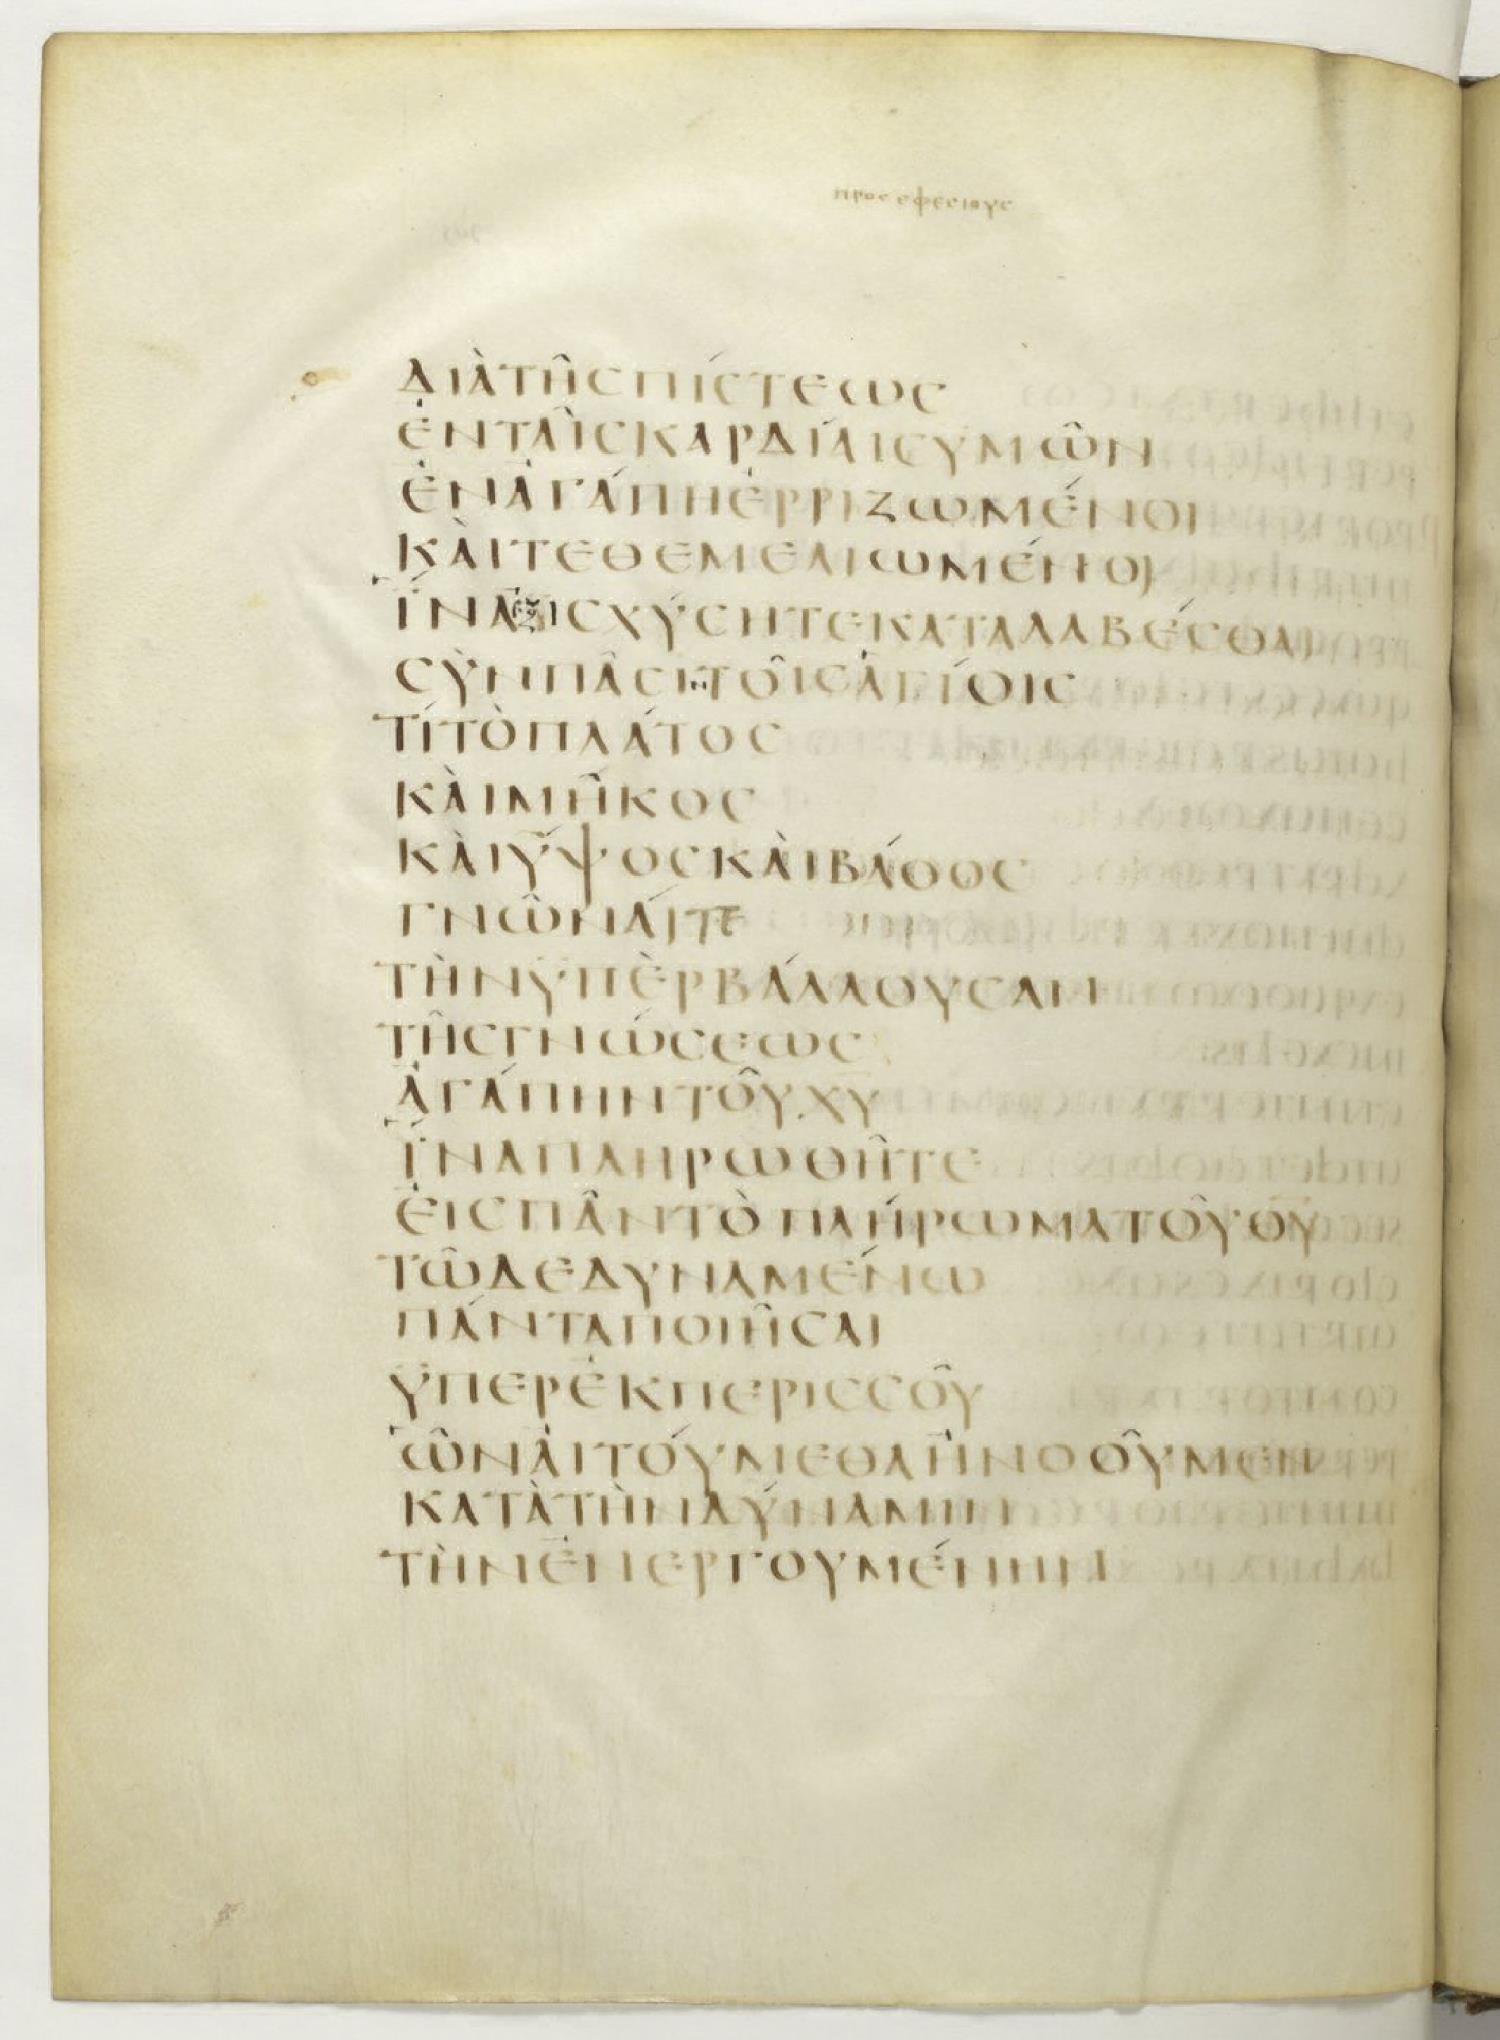 προς εφεσιους
ΔΙᾺΤΗ͂ϹΠΊϹΤΕΩϹ
ἘΝΤΑΙ͂ϹΚΑΡΔΊΑΙϹΥΜΩ͂Ν
ἘΝἈΓΆΠΗἘΡΡΙΖΩΜΈΝΟΙ
ΚᾺΙΤΕΘΕΜΕΛΙΩΜΈΝΟΙ
ΐΝΑἐξΙϹΧΎϹΗΤΕΚΑΤΑΛΑΒΈϹΘΑΙ
ϹῪΝΠΑ͂ϹΙΝΤΟΙ͂ϹἈΓΊΟΙϹ
ΤΊΤῸΠΛΆΤΟϹ
ΚᾺΙΜΗ͂ΚΟϹ
ΚᾺΙΎΨΟϹΚᾺΙΒΆΘΟϹ
ΓΝΩ͂ΝΑΊΤΕ
ΤῊΝΫΠῈΡΒΆΛΛΟΥϹΑΝ
ΤΗ͂ϹΓΝΏϹΕΩϹ
ἈΓΆΠΗΝΤΟΥ͂ΧΥ
ΐΝΑΠΛΗΡΩΘΗ͂ΤΕ
ἘΙϹΠΑ͂ΝΤῸΠΛΉΡΩΜΑΤΟΥ͂ΘΥ
ΤΩ͂ΔΕΔΥΝΑΜΈΝΩ
ΠΆΝΤΑΠΟΙΗ͂ϹΑΙ
ΫΠΕΡἘΚΠΕΡΙϹϹΟΥ͂
Ω͂ΝἈΙΤΟΎΜΕΘΑἨΝΟΟΥ͂ΜΕΝ
ΚΑΤᾺΤῊΝΔΎΝΑΜΙΝ
ΤῊΝἘΝΕΡΓΟΥΜΈΝΗΝ